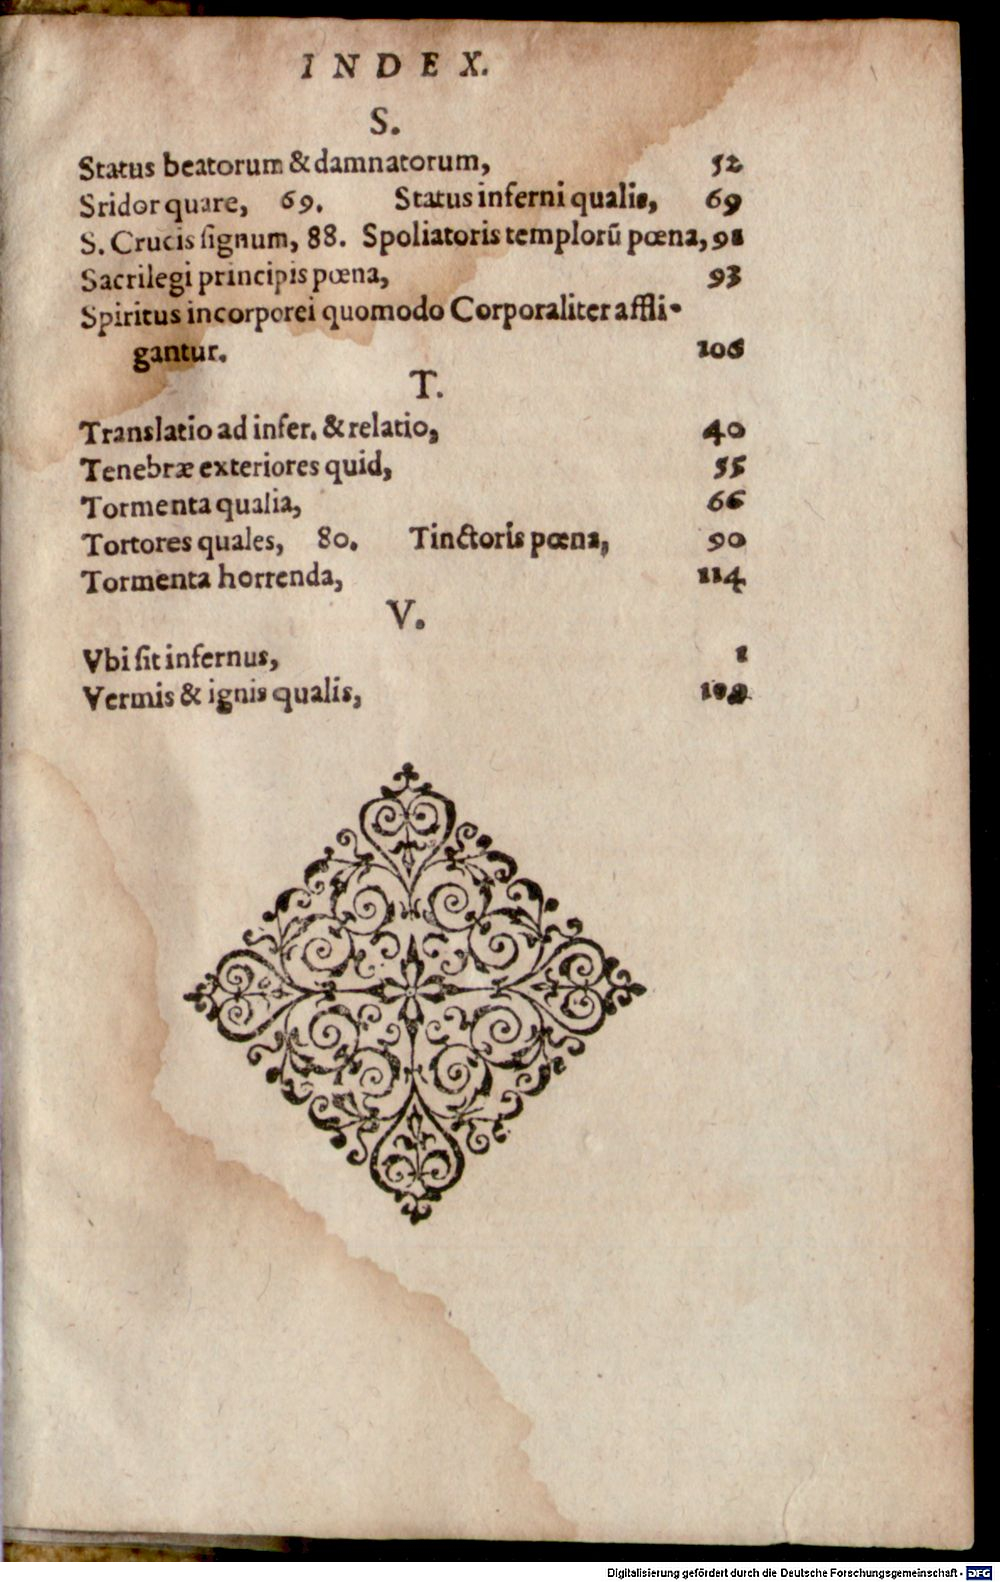 INDEX.
S.
Status beatorum & damnatorum, 52
Sridor quare, 69. Status inferni qualis, 69
S. Crucis ſignum, 88. Spoliatoris templorū pœna, 91
Sacrilegi principis pœna, 93
Spiritus incorporei quomodo Corporaliter affli-
gantur. 106
T.
Translatio ad infer. & relatio, 40
Tenebræ exteriores quid, 55
Tormenta qualia, 66
Tortores quales, 80. Tinctoris pœna, 90
Tormenta horrenda, 114
V.
Vbi ſit infernus, 1
Vermis & ignis qualis,
Digitalisierung gefördert durch die Deutsche Forschungsgemeinschaft - DFG